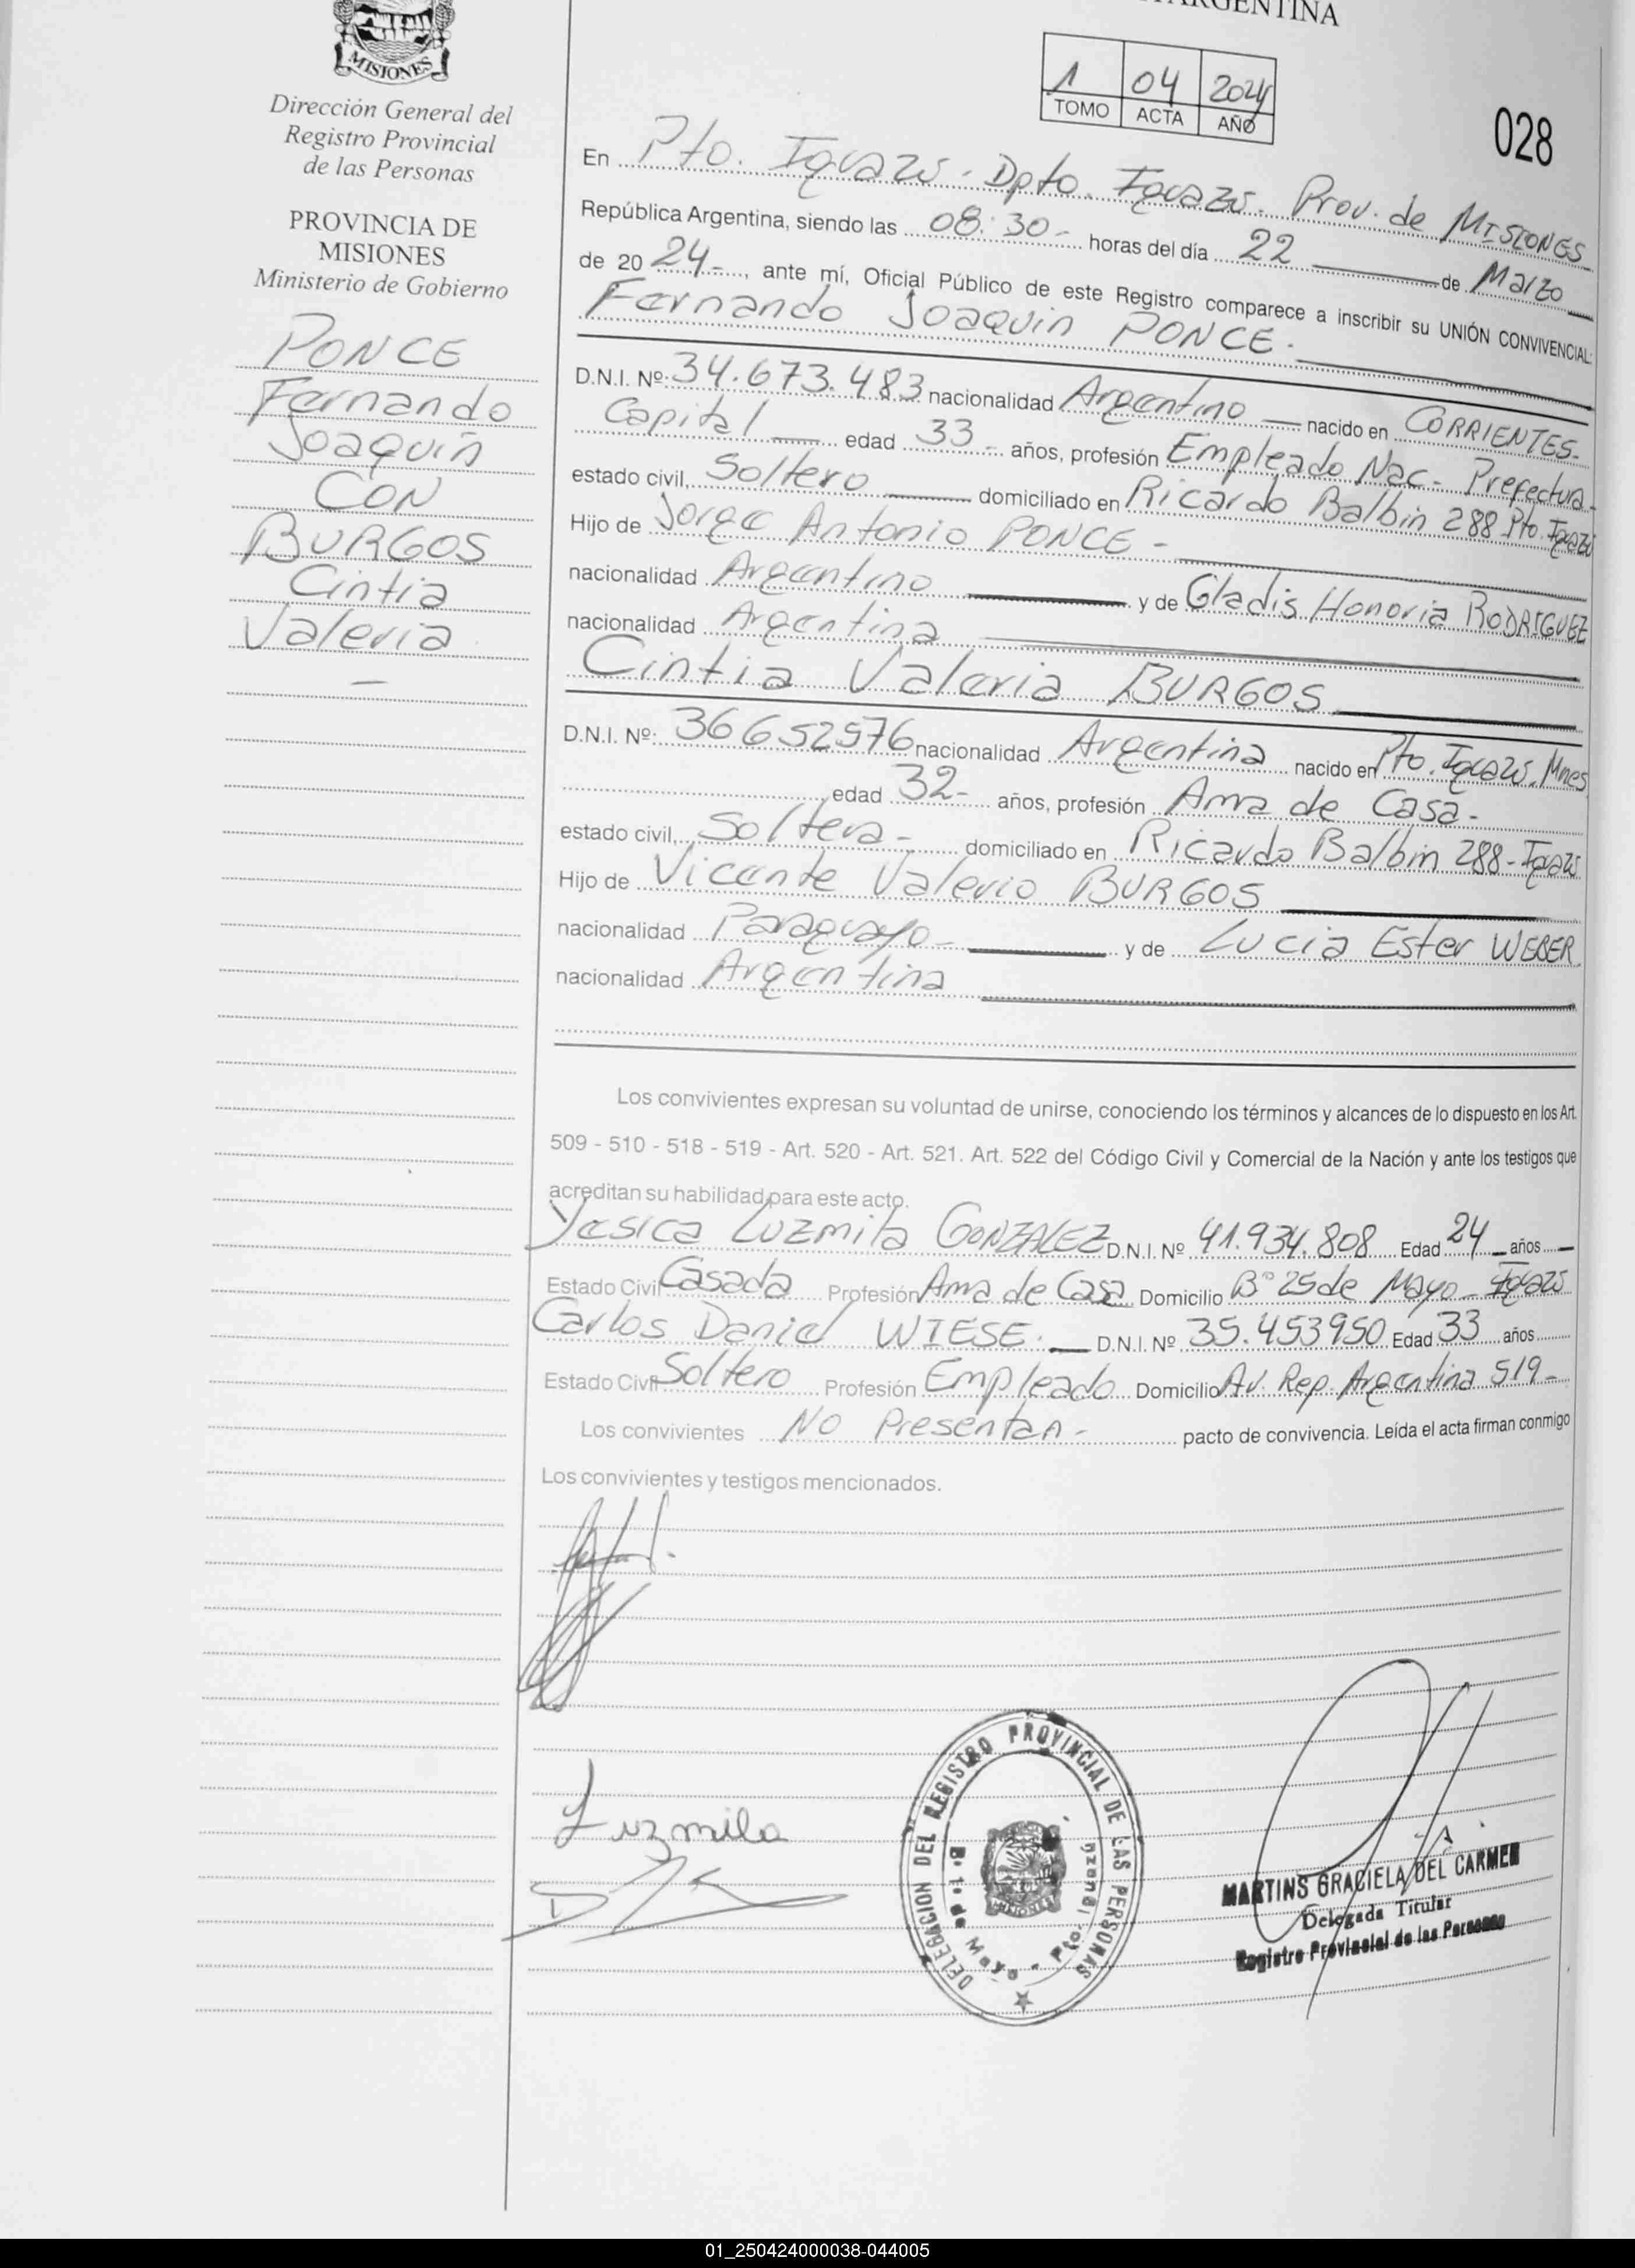 ARGENTINA
MISIONES
Dirección General del
Registro Provincial
de las Personas
PROVINCIA DE
MISIONES
Ministerio de Gobierno
PONCE
Fernando
Joaquín
CON
BURGOS
Cintia
Valeria
1 04 2024
TOMO ACTA AÑO
028
En Pto. Iguazú. Dpto. Iguazú. Prov. de MISIONES
República Argentina, siendo las 08:30- horas del día 22 de Marzo
de 20 24-, ante mí, Oficial Público de este Registro comparece a inscribir su UNIÓN CONVIVENCIAL:
Fernando Joaquin PONCE.
D.N.I. Nº: 34.673.483 nacionalidad Argentino nacido en CORRIENTES-
Capital edad 33- años, profesión Empleado Nac- Prefectura-
estado civil, Soltero domiciliado en Ricardo Balbin 288 Pto. Iguazú
Hijo de Jorge Antonio PONCE -
nacionalidad Argentino y de Gladis Honoria RODRIGUEZ
nacionalidad Argentina
Cintia Valeria BURGOS
D.N.I. Nº: 36652576 nacionalidad Argentina nacido en Pto. Iguazú. Mnes
edad 32- años, profesión Ama de Casa-
estado civil, Soltera- domiciliado en Ricardo Balbin 288-Iguazú
Hijo de Vicente Valerio BURGOS
nacionalidad Paraguayo- y de Lucia Ester WEBER
nacionalidad Argentina
Los convivientes expresan su voluntad de unirse, conociendo los términos y alcances de lo dispuesto en los Art.
509 - 510 - 518 - 519 - Art. 520 - Art. 521. Art. 522 del Código Civil y Comercial de la Nación y ante los testigos que
acreditan su habilidad para este acto.
Yesica Luzmila GONZALEZ D.N.I. Nº 41.934.808 Edad 24 años
Estado Civil Casada Profesión Ama de Casa Domicilio Bº 25 de Mayo - Iguazú
Carlos Daniel WIESE. D.N.I. Nº 35.453950 Edad 33 años
Estado Civil Soltero Profesión Empleado Domicilio Av. Rep. Argentina 519-
Los convivientes NO Presentan- pacto de convivencia. Leída el acta firman conmigo
Los convivientes y testigos mencionados.
Luzmila
DELEGACION DEL REGISTRO PROVINCIAL DE LAS PERSONAS
Bº 1º de Mayo - Pto. Iguazú
MARTINS GRACIELA DEL CARMEN
Delegada Titular
Registro Provincial de las Personas
01_250424000038-044005